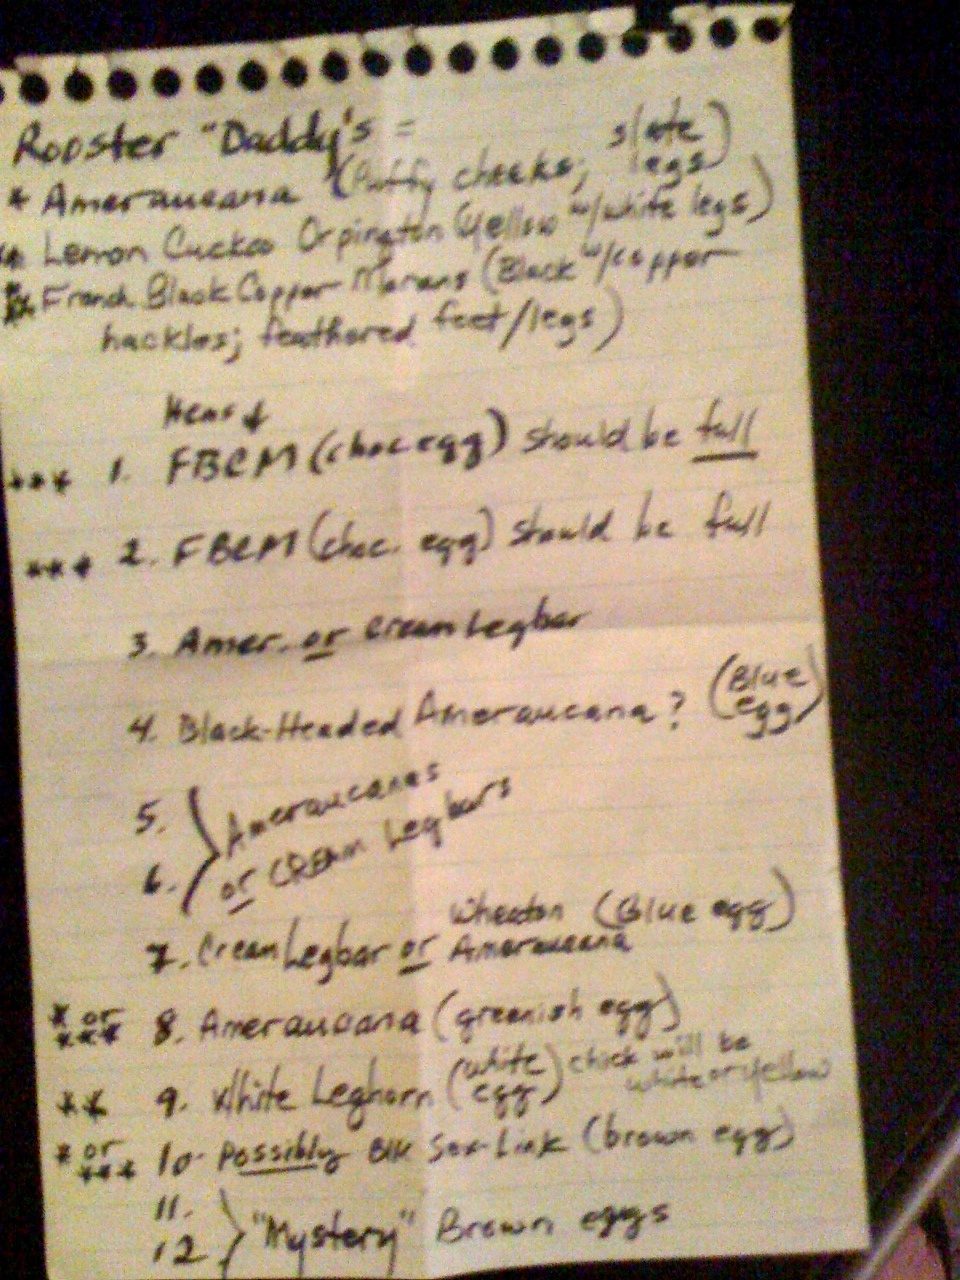 Rooster "Daddy's =
* Ameraucana (Puffy cheeks; slate legs)
** Lemon Cuckoo Orpington (Yellow w/white legs)
*** French Black Copper Marans (Black w/copper
hackles; feathered feet/legs)
Hens ↓
*** 1. FBCM (choc egg) should be full
*** 2. FBCM (choc. egg) should be full
3. Amer. or Cream Legbar
4. Black-Headed Ameraucana? (Blue egg)
5. } Ameraucanas
6. } or CREAM Legbars
7. Cream Legbar or Wheaton Ameraucana (Blue egg)
* or *** 8. Ameraucana (greenish egg)
** 9. White Leghorn (white egg) chick will be white or yellow
* or *** 10. Possibly Blk Sex-Link (brown egg)
11. }
12 } "Mystery" Brown eggs